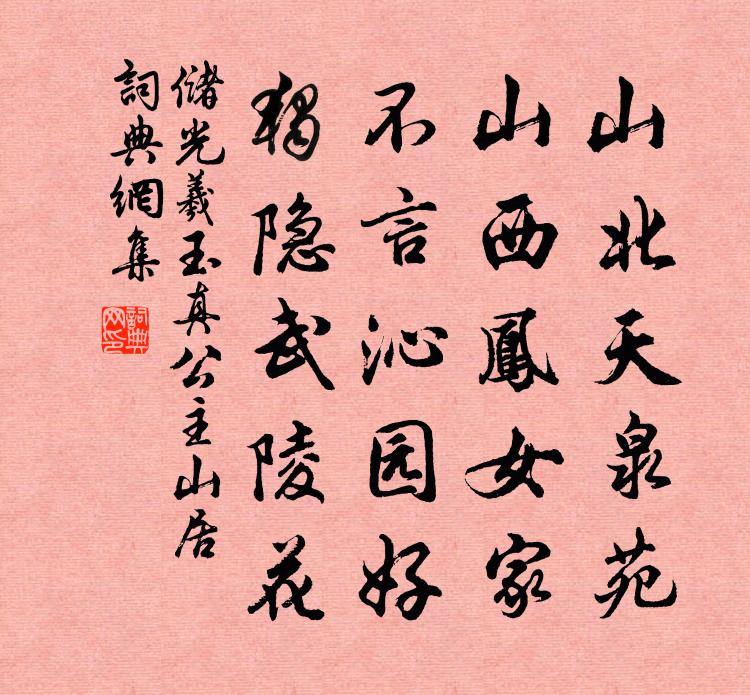 山北天泉苑
山西鳳女家
不言沁园好
獨隐武陵花
儲光羲玉真公主山居
詞典網集
詞典网印